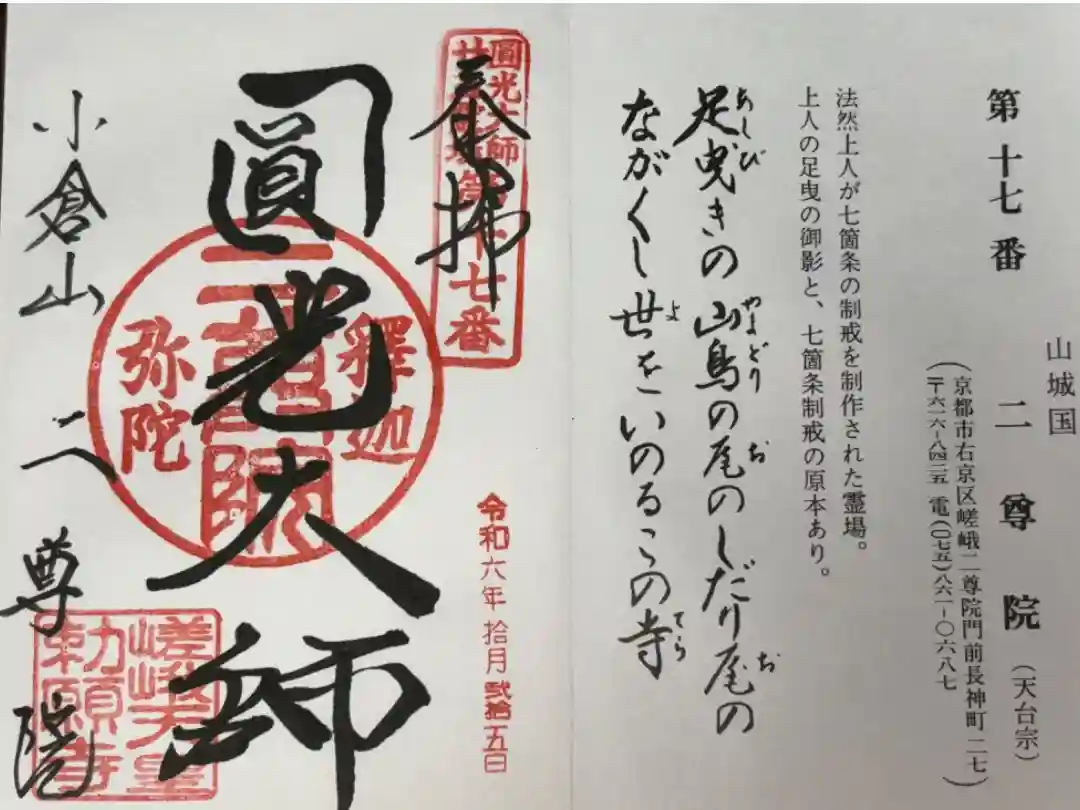 山城国
第十七番 二尊院(天台宗)
(京都市右京区嵯峨二尊院門前長神町二七)
(〒六一六-八四二五 電(〇七五)八六一-〇六八七)
法然上人が七箇条の制戒を制作された霊場。
上人の足曳の御影と、七箇条制戒の原本あり。
足曳きの山鳥の尾のしだり尾の
あしび やまどり お お
ながくし世をいのるこの寺
よ てら
奉拝
圓光大師
廿五霊場第十七番
令和六年拾月弐拾五日
圓光大師
釋迦
弥陀
小倉山 二尊院
嵯峨天皇
勅願寺